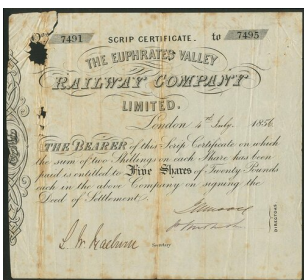 7491 SCRIP CERTIFICATE. to 7495
THE EUPHRATES VALLEY
RAILWAY COMPANY
LIMITED.
London 4th July. 1856
THE BEARER of this Scrip Certificate on which
the sum of two Shillings on each Share has been
paid is entitled to Five Shares of Twenty Pounds
each in the above Company on signing the
Deed of Settlement.
DIRECTORS
Secretary